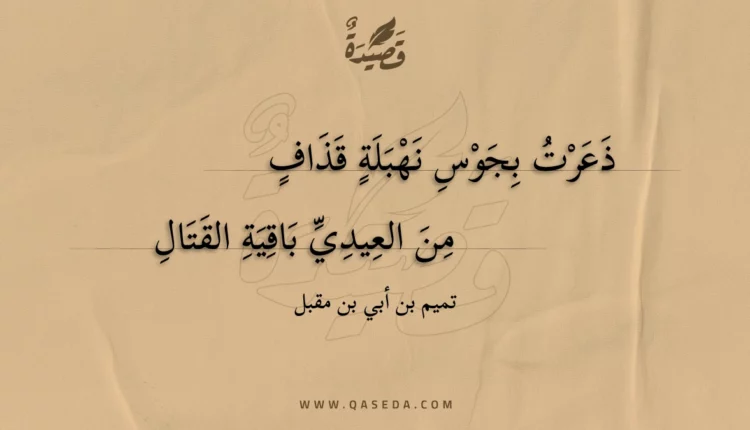 قَصِيدَةٌ
ذَعَرْتُ بِجَوْسِ نَهْبَلَةٍ قَذَافٍ
مِنَ العِيدِيِّ بَاقِيَةِ القَتَالِ
تميم بن أبي بن مقبل
WWW.QASEDA.COM